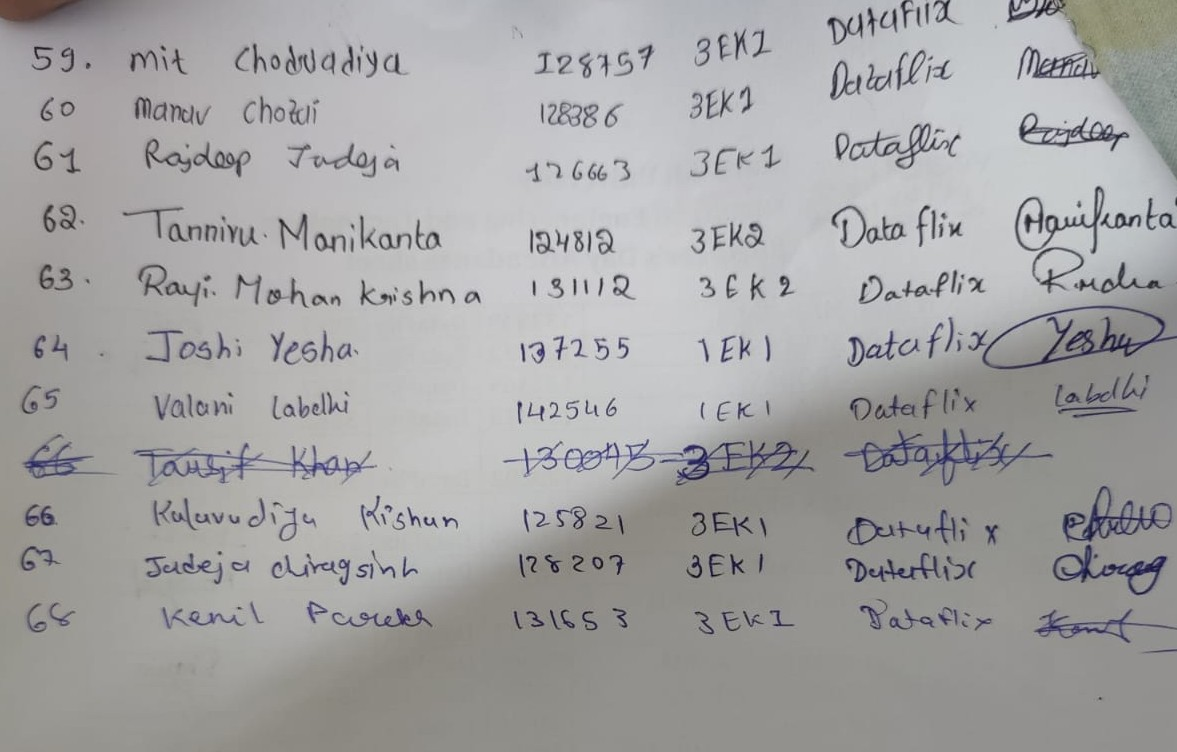 59. mit Chodvadiya 128757 3EK1 Dataflix
60 Manav Chotai 128386 3EK1 Dataflix
61 Rajdeep Jadeja 126663 3EK1 Dataflix Rajdeep
62. Tanniru. Manikanta 124812 3EK2 Dataflix Manikanta
63. Rayi. Mohan Krishna 131112 3EK2 Dataflix
64. Joshi Yesha. 137255 1EK1 Dataflix Yesha
65 Valani Labdhi 142546 1EK1 Dataflix Labdhi
66 Tausif Khan 3EK2 Dataflix
66 Kalavadiya Kishan 125821 3EK1 Dataflix
67 Jadeja chiragsinh 128207 3EK1 Dataflix Chirag
68 Kenil Parekh 131653 3EK1 Dataflix